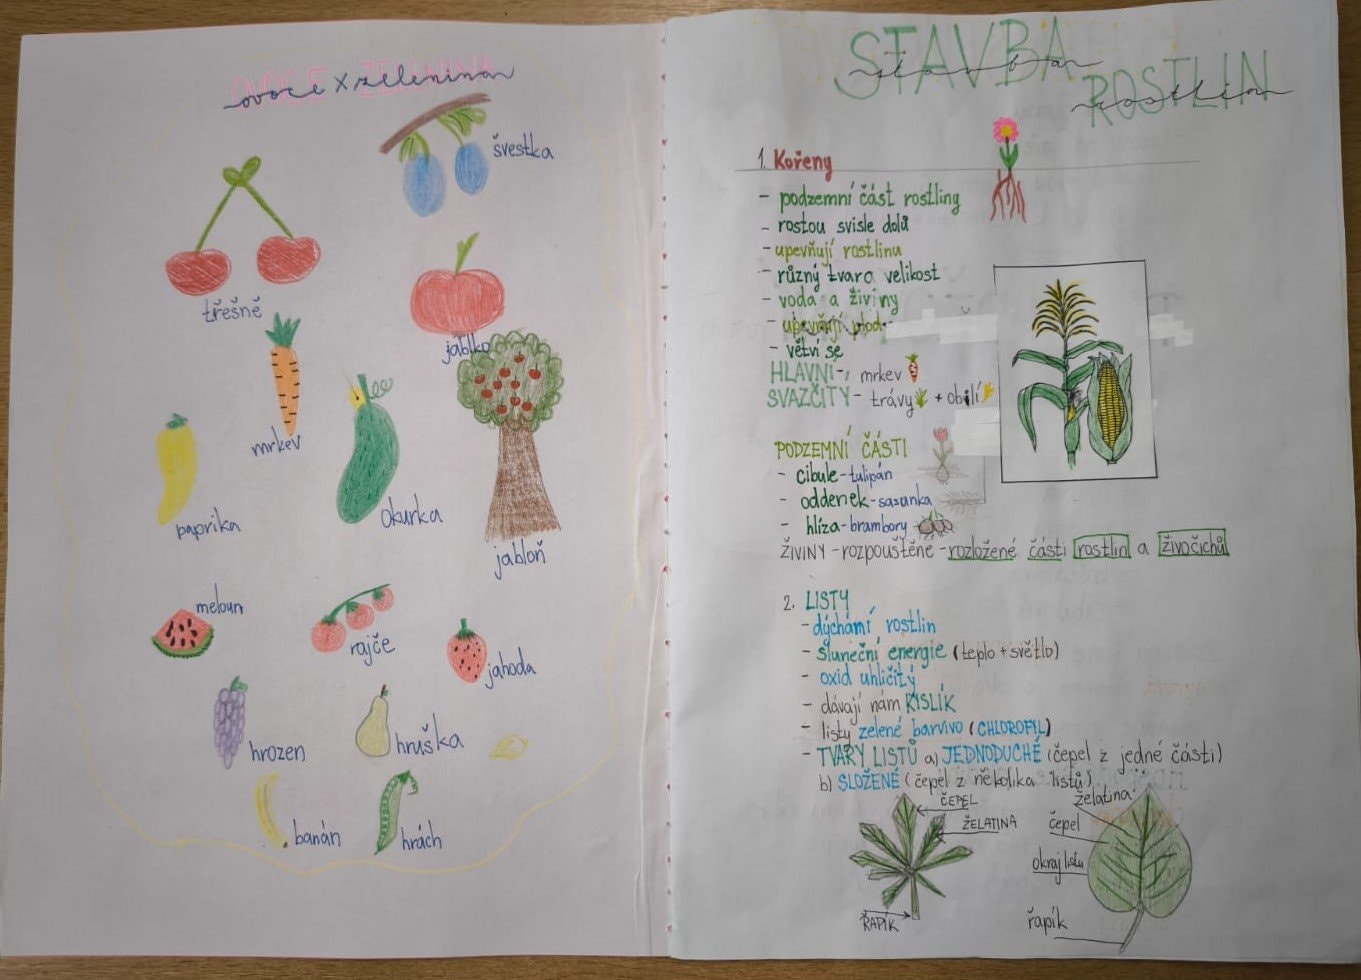 OVOCE X ZELENINA
ovoce x zelenina
švestka
třešně
jablko
mrkev
paprika
okurka
jabloň
meloun
rajče
jahoda
hrozen
hruška
banán
hrách
STAVBA
stavba
ROSTLIN
rostlin
1. Kořeny
- podzemní část rostliny
- rostou svisle dolů
- upevňují rostlinu
- různý tvar a velikost
- voda a živiny
- upevňují plod
- větví se
HLAVNÍ - mrkev
SVAZČITÝ - trávy + obilí
PODZEMNÍ ČÁSTI
- cibule - tulipán
- oddenek - sasanka
- hlíza - brambory
ŽIVINY - rozpouštěné - rozložené části rostlin a živočichů
2. LISTY
- dýchání rostlin
- sluneční energie (teplo + světlo)
- oxid uhličitý
- dávají nám KYSLÍK
- listy zelené barvivo (CHLOROFIL)
- TVARY LISTŮ a) JEDNODUCHÉ (čepel z jedné části)
b) SLOŽENÉ (čepel z několika listů)
ČEPEL
ŽELATINA
ŘAPÍK
želatina
čepel
okraj listu
řapík